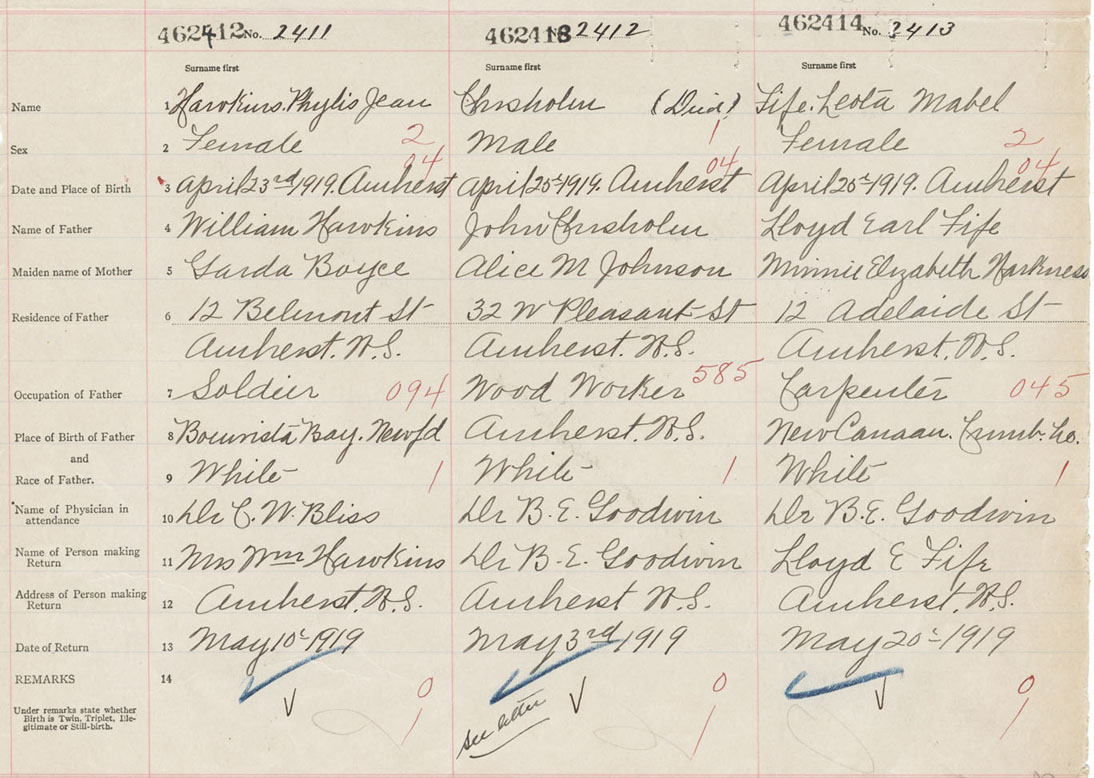 462412 No. 2411 462413 2412 462414 No. 2413
Surname first Surname first Surname first
Name 1 Hawkins. Phylis Jean Chisholm (Died) Fife. Leota Mabel
Sex 2 Female 2 Male 1 Female 2
04 04 04
Date and Place of Birth 3 April 23rd 1919. Amherst April 25th 1919. Amherst April 20th 1919. Amherst
Name of Father 4 William Hawkins John Chisholm Lloyd Earl Fife
Maiden name of Mother 5 Garda Boyce Alice M Johnson Minnie Elizabeth Harkness
Residence of Father 6 12 Belmont St 32 W Pleasant St 12 Adelaide St
Amherst. N.S. Amherst. N.S. Amherst. N.S.
Occupation of Father 7 Soldier 094 Wood Worker 585 Carpenter 045
Place of Birth of Father 8 Bonvista Bay. Newfd Amherst. N.S. New Canaan. Cumb. Co.
and
Race of Father. 9 White 1 White 1 White 1
Name of Physician in
attendance 10 Dr C. W. Bliss Dr B. E. Goodwin Dr B. E. Goodwin
Name of Person making
Return 11 Mrs Wm Hawkins Dr B. E. Goodwin Lloyd E Fife
Address of Person making
Return 12 Amherst. N.S. Amherst N.S. Amherst. N.S.
Date of Return 13 May 10th 1919 May 3rd 1919 May 20th 1919
REMARKS 14 0 0 0
Under remarks state whether
Birth is Twin, Triplet, Ille-
gitimate or Still-birth. 1 see letter 1 1